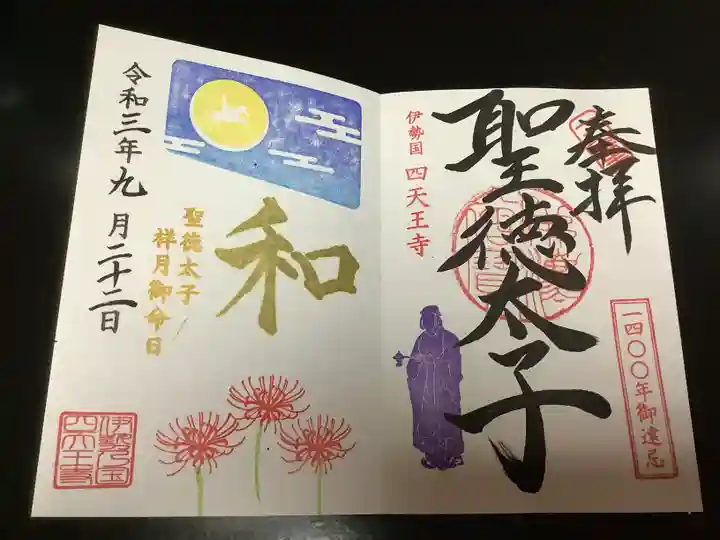 奉拝
聖徳太子
伊勢国 四天王寺
一四〇〇年御遠忌
和
聖徳太子
祥月御命日
令和三年九月二十二日
伊勢乃国
四天王寺